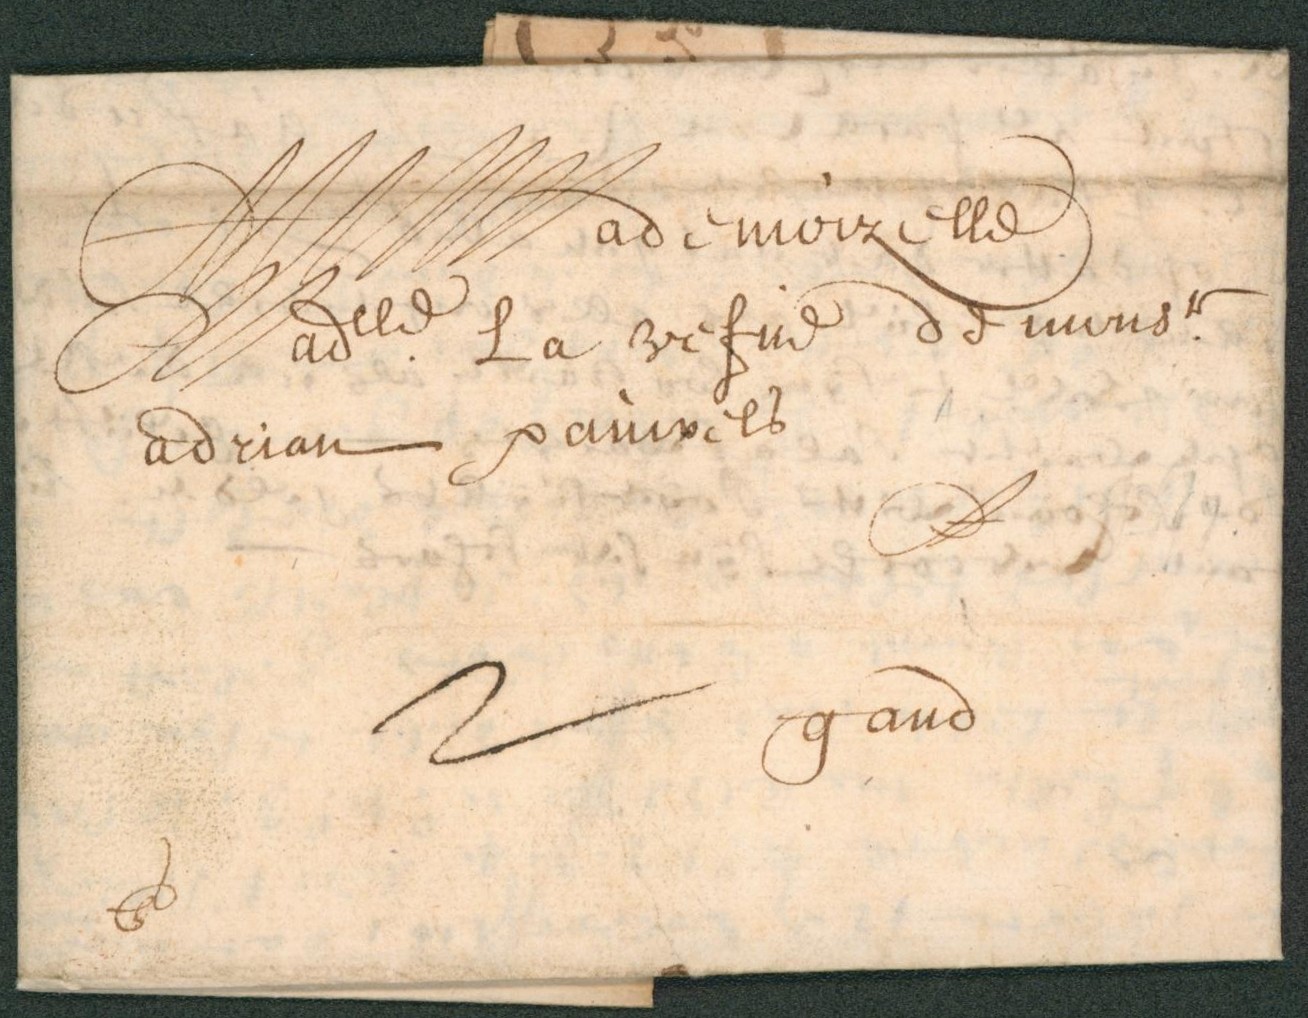 Mademoizelle
Mad.elle La vefue de mons.r
adrian pauwels
A
2 gand